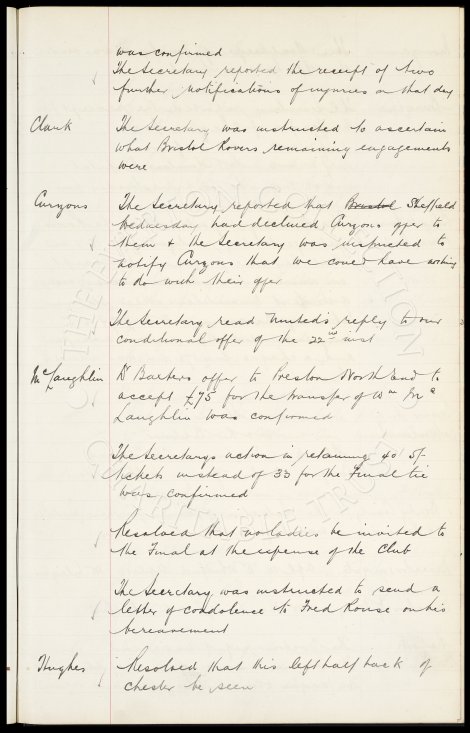 was confirmed
The Secretary reported the receipt of two
further notifications of injuries on that day
Clark The Secretary was instructed to ascertain
what Bristol Rovers remaining engagements
were
Curzons The Secretary reported that Bristol Sheffield
Wednesday had declined Curzons offer to
them & the Secretary was instructed to
notify Curzons that we could have nothing
to do with their offer
The Secretary read United's reply to our
conditional offer of the 22nd inst
McLaughlin Dr Baxters offer to Preston North End to
accept £75 for the transfer of Wm Mc
Laughlin was confirmed
The Secretarys action in retaining 40 5/-
tickets instead of 33 for the Final tie
was confirmed
Resolved that no ladies be invited to
the Final at the expense of the Club
The Secretary was instructed to send a
letter of condolence to Fred Rouse on his
bereavement
Hughes Resolved that this left half back of
Chester be seen